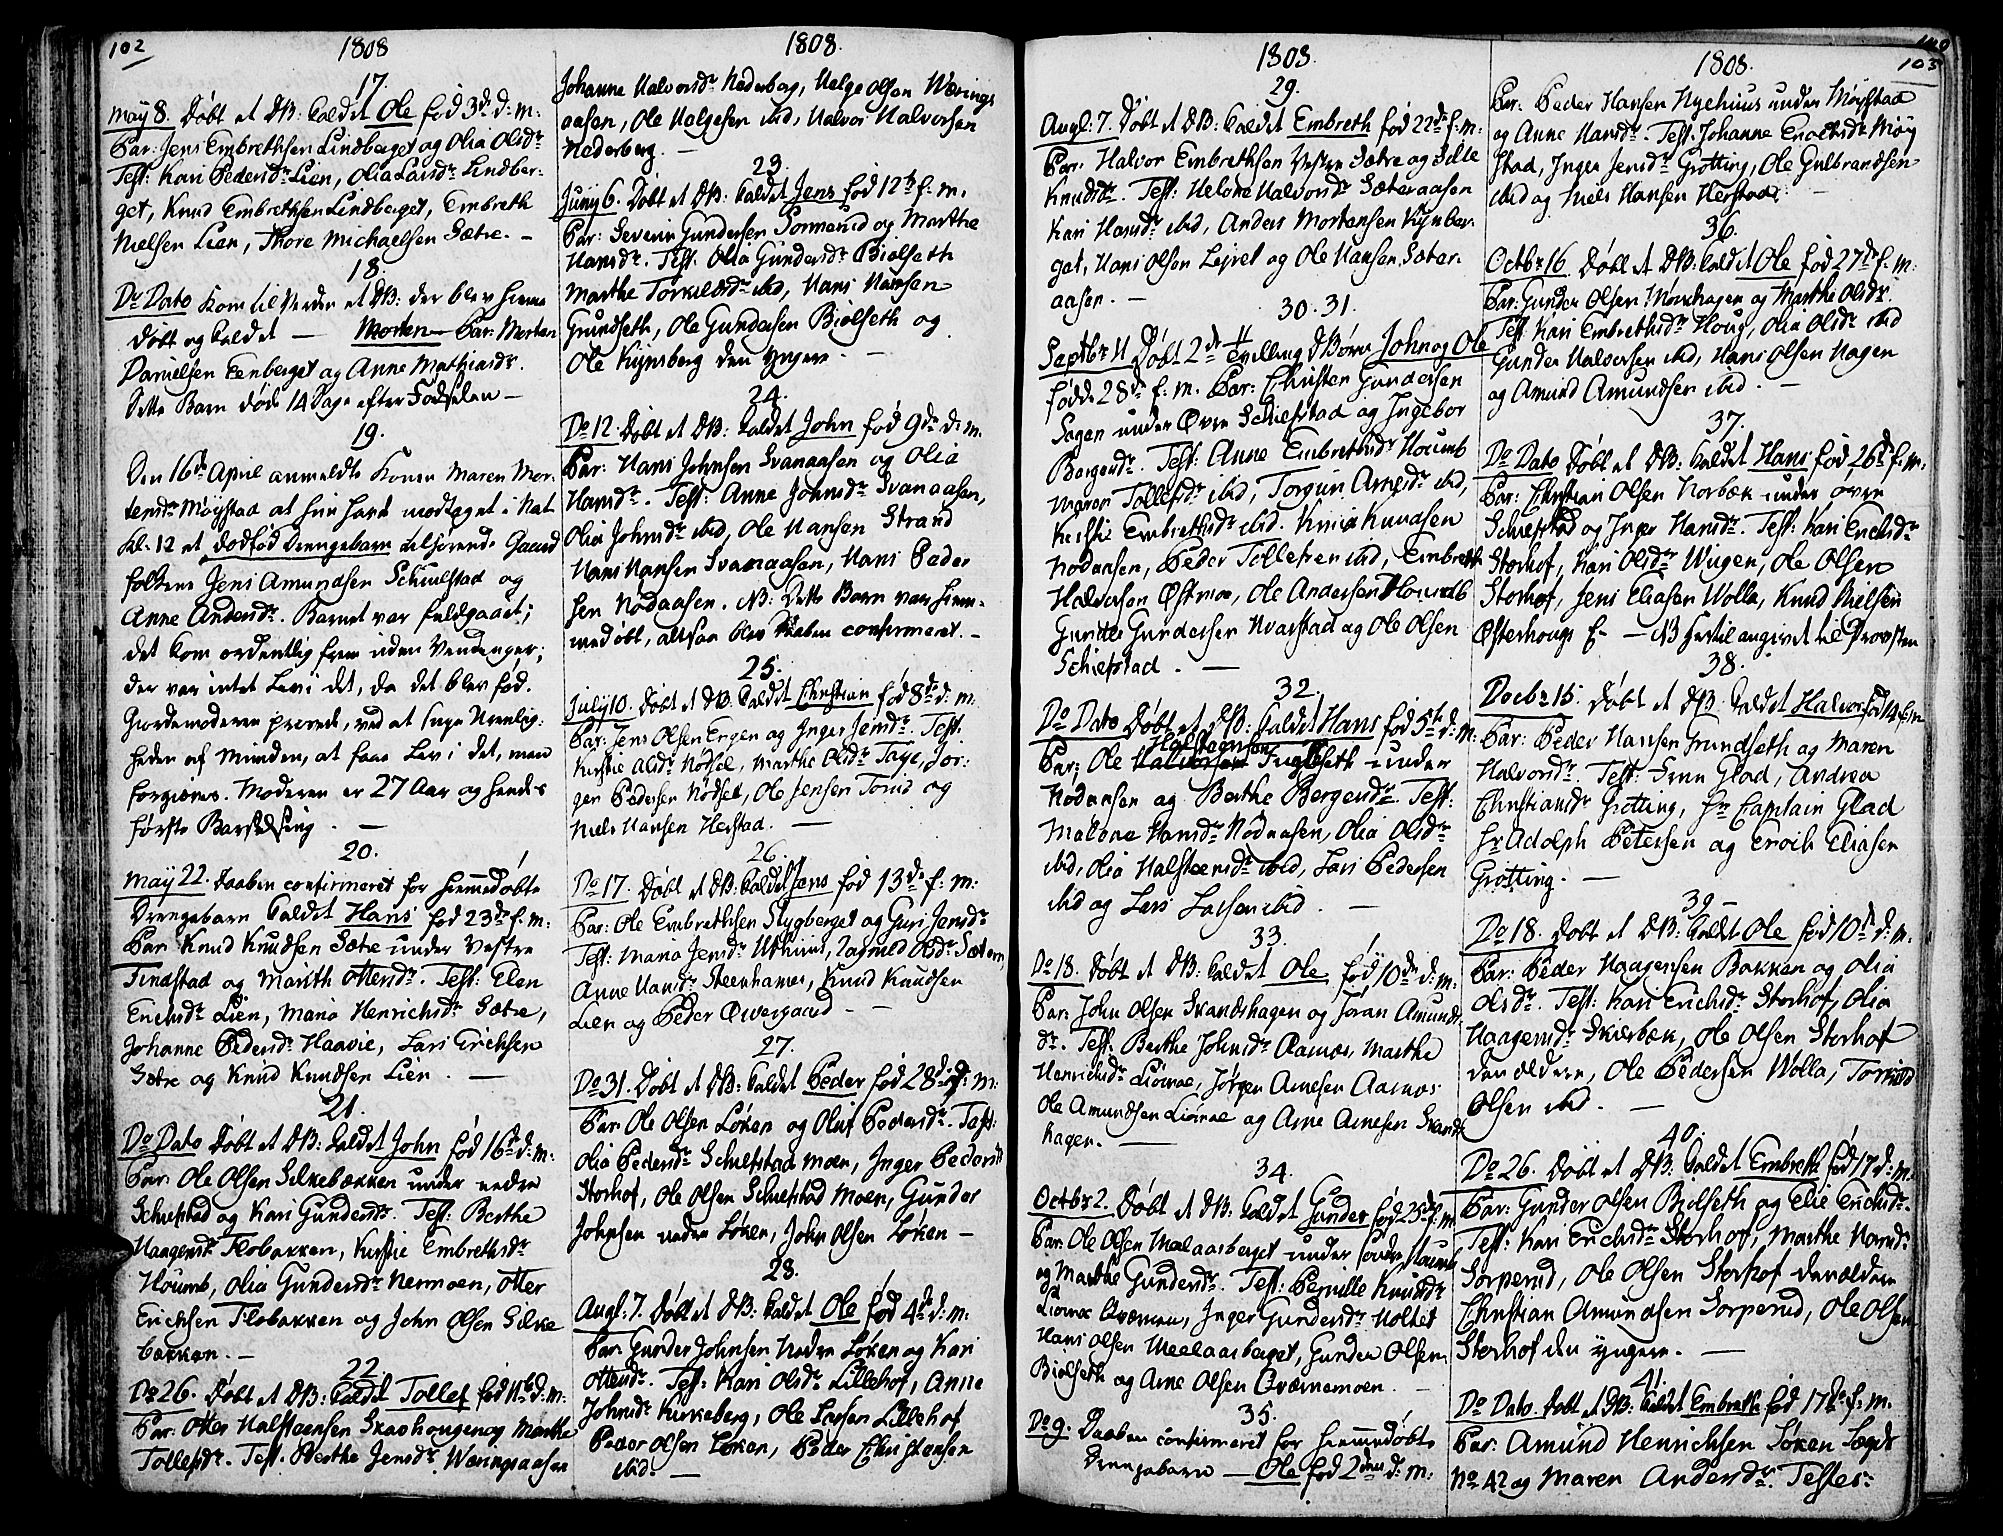 102
1808
17.
May 8. Døbt et DB: kaldet Ole fød 3de d: m:
Par: Jens Embrethsen Lindberget og Olia Olsdr
Test: Kari Pedersdr Lien, Olia Larsdr Lindber-
get, Knud Embrethsen Lindberget, Embreth
Nielsen Lien, Thore Michaelsen Sætre. –
18.
Do Dato kom til Verden et DB: der blev hieme
døbt og kaldet — Morten – Par: Morten
Danielsen Eenberget og Anne Mathiasdr.
Dette Barn døde 14 Dage efter Fødselen –
19.
Den 16de April anmeldte Konen Maren Mor-
tensdr Møystad at hun havde modtaget i Nat
Kl. 12 et dødfød Drengebarn tilhørende Gaard
folkene Jens Amundsen Schiulstad og
Anne Andersdr. Barnet var fuldgaaet;
det kom ordentlig frem uden Vendinger;
der var intet Lev i det, da det blev fød.
Giordemoderen prøvede, ved at suge Ureenlig-
heden af Munden, at faae Lev i det, men
forgieves. Moderen er 27 Aar og hendes
første Barselseng. —
20.
May 22. Daaben confirmeret for hiemmedøbte
Drengebarn kaldet Hans fød 23de f: m:
Par: Knud Knudsen Sætre under Vestre
Findstad og Marith Ottersdr. Test: Elen
Erichsdr Lien, Maria Henrichsdr Sætre,
Johanne Pedersdr Haavie, Lars Erichsen
Sætre og Knud Knudsen Lien. —
21.
Do Dato Døbt et DB: kaldet John fød 16de d: m:
Par: Ole Olsen Silkebækken under nedre
Schiefstad og Kari Gundersdr. Test: Berthe
Haagensdr Flobakken, Kirstie Embrethsdr
Houmb, Olia Gundersdr Nermoen, Otter
Erichsen Flobakken og John Olsen Silke
bækken. –
22.
Do 26. Døbt et DB: kaldet Tollef fød 11te d: m:
Par: Otter Halsteensen Skaohougen og Marthe
Tollefsdr. Test: Berthe Jensdr. Wæringsaasen
1808.
Johanne Halvorsdr Nederberg, Helge Olsen Wærings
aasen, Ole Helgesen ibid, Halvor Halvorsen
Nederberg. —
23.
Juny 6. Døbt et DB: kaldet Jens fød 12te f: m.
Par: Severin Gundersen Sormerud og Marthe
Hansdr. Test: Olia Gundersdr Biølseth
Marthe Torkildsdr ibid, Hans Hansen
Grundseth, Ole Gundersen Biølseth og
Ole Kiynsberg den yngere. —
24.
Do 12. Døbt et DB: kaldet John fød 9de d: m.
Par: Hans Johnsen Svanaasen og Olia
Hansdr. Test: Anne Johnsdr Svanaasen,
Olia Johnsdr ibid, Ole Hansen Strand
Hans Hansen Svanaasen, Hans Peder
sen Nodaasen. NB: Dette Barn var hiem-
medøbt, altsaa blev Daaben confirmeret. –
25.
July 10. Døbt et DB: kaldet Christian fød 8de d: m:
Par: Jens Olsen Ergen og Inger Jensdr. Test.
Kirstie Olsdr Nodsel, Marthe Olsdr Tage, Jør-
gen Pedersen Nodset, Ole Jensen Torud og
Niels Hansen Herstad. —
26.
Do 17. Døbt et DB: kaldet Jens fød 13de f: m:
Par: Ole Embrethsen Stygberget og Guri Jensdr
Test: Maria Jensdr Uthuus, Ragnild Olsdr Sætern,
Anne Hansdr Steenhamer, Knud Knudsen
Lien og Peder Øvergaard —
27.
Do 31. Døbt et DB: kaldet Peder fød 28de d: m:
Par: Ole Olsen Løken og Oluf Pedersdr. Test:
Olia Pedersdr Schiefstad moen, Inger Pedersdr
Storhof, Ole Olsen Schiefstad Moen, Gunder
Johnsen neder Løken, John Olsen Løken –
28.
Augt: 7. Døbt et DB: kaldet Ole fød 4de d: m:
Par: Gunder Johnsen Neder Løken og Kari
Ottersdr. Test: Kari Olsdr Lillehof, Anne
Johnsdr Kirkeberg, Ole Larsen Lillehof
Peder Olsen Løken, Peder Christensen
ibid. —
1808.
29.
Augt: 7. Døbt et DB: kaldet Embreth fød 22de f: m:
Par: Halvor Embrethsen Vestre Sætre og Idde
Knudsdr. Test: Helene Halvorsdr Sæteraasen
Kari Hansdr ibid, Anders Mortensen Kiynber-
get, Hans Olsen Lejret og Ole Hansen Sæter-
aasen. —
30. 31.
Septbr 11 Døbt 2de Tvilling DBørn John og Ole
fødde 28de f: m. Par: Christen Gundersen
Sagen under Øvre Schiefstad og Ingebor
Bergersdr. Test: Anne Embrethsdr Houmb
Maren Tollefsdr ibid, Torgun Arnesdr ibid,
Kirsti Embrethsdr ibid. Knud Knudsen
Nodansen, Peder Tollefsen ibid, Embreth
Halvorsen Østmoe, Ole Andersen Houmb
Gunder Gundersen Kvarstad og Ole Olsen
Schiefstad. —
32.
Do Dato Døbt et DB: kaldet Hans fød 5te d: m:
Halsteensen
Par: Ole Halvorsen Fugleseth under
Nodansen og Berthe Bergersdr. Test:
Malene Hansdr Nodaasen, Olia Olsdr
ibid, Olia Halsteensdr ibid, Lars Pedersen
ibid og Lars Larsen ibid. —
33.
Do 18. Døbt et DB: kaldet Ole fød 10de d: m:
Par: John Olsen Skandshagen og Jøran Amunds
dr. Test: Berthe Johnsdr Aamoe, Marthe
Henrichsdr Liømoe, Jørgen Arnesen Aamoe
Ole Amundsen Liømoe og Arne Arnesen Skands
hagen. —
34.
Octbr 2. Døbt et DB: kaldet Gunder fød 23de f: m.
Par: Ole Olsen Melaasberget under søndre Houmb
og Marthe Gundersdr. Test: Pernille Knudsdr
Liømoe Qværnen, Inger Gundersdr Holtet
Hans Olsen Meelaasberget, Gunder Olsen
Biølseth og Arne Olsen Qværnemoen. —
35.
Do 9. Daaben confirmeret for hiemmedøbte
Drengebarn — Ole fød 2den d: m:
103
1808.
Par: Peder Hansen Nyehuus under Møystad
og Anne Hansdr. Test: Johanne Enochsdr Møy
stad, Inger Jensdr Grøtting, Ole Gulbrandsen
ibid og Niels Hansen Herstad. —
36.
Octbr 16. Døbt et DB: kaldet Ole fød 27de f: m:
Par: Gunder Olsen Moxhagen og Marthe Olsdr.
Test: Kari Embrethsdr Houg, Olia Olsdr ibid
Gunder Halvorsen ibid, Hans Olsen Hagen
og Amund Amundsen ibid. —
37.
Do Dato Døbt et DB: kaldet Hans fød 26de f: m:
Par: Christian Olsen Norbæk under øvre
Schiefstad og Inger Hansdr. Test: Kari Erichsdr
Storhof, Kari Olsdr Wiigen, Ole Olsen
Storhof, Jens Eliasen Wolla, Knud Nielsen
Østerhougs E. – NB hertil angivet til Provsten
38.
Decbr 15. Døbt et DB. kaldet Halvor fød 14 f: m
Par: Peder Hansen Grundseth og Maren
Halvorsdr. Test: Frue Glad, Andrea
Christiansdr Grøtting, Hr Captain Glad
Hr Adolph Petersen og Enoch Eliasen
Grøtting. —
39.
Do 18. Døbt et DB: kaldet Ole fød 10de d: m.
Par: Peder Haagensen Bakken og Olia
Olsdr. Test: Kari Erichsdr Storhof, Olia
Haagensdr Skierbæk, Ole Olsen Storhof
den ældere, Ole Pedersen Wolla, Torkild
Olsen ibid. —
40.
Do 26. Døbt et DB: kaldet Embreth fød 17 d: m.
Par: Gunder Olsen Biølseth og Elie Erichsdr.
Test: Kari Erichsdr Storhof, Marthe Hansdr
Sorperud, Ole Olsen Storhof den ældere
Christian Amundsen Sorperud, Ole Olsen
Storhof den yngere. —
41.
Do Dato. Døbt et DB: kaldet Embreth fød 17de f: m.
Par: Amund Henrichsen Løken Lægd
No 42 og Maren Andersdr. Testes: